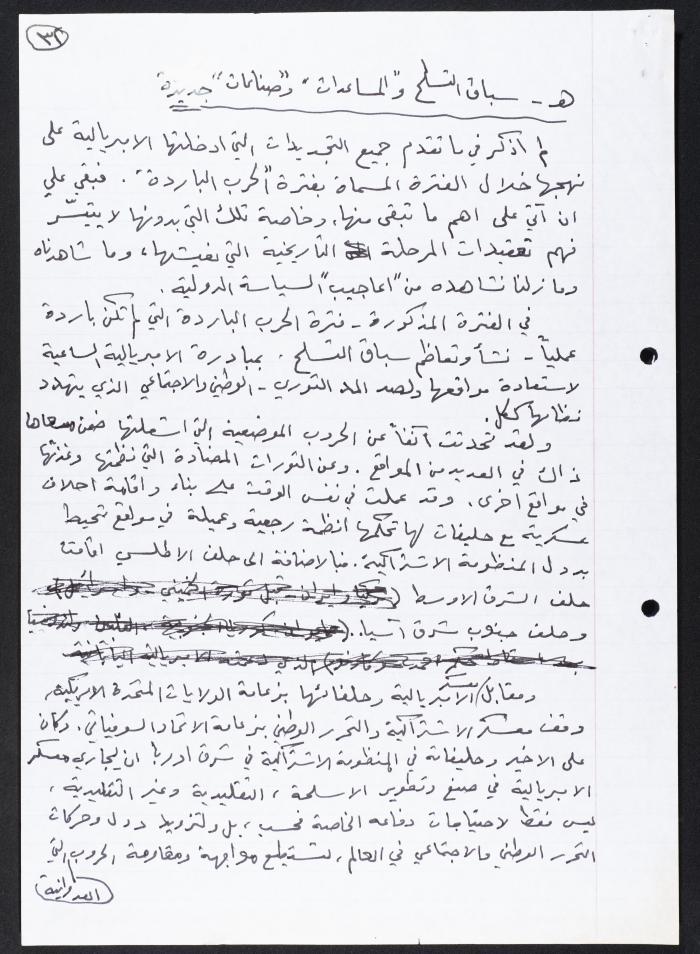 ٣٢
هـ - سباق التسلح و"المساعدات" و"صناعات" جديدة
لم اذكر في ما تقدم جميع التجديدات التي ادخلتها الامبريالية على
نهجها خلال الفترة المسماة بفترة "الحرب الباردة". فبقي علي
ان آتي على اهم ما تبقى منها، وخاصة تلك التي بدونها لا يتيسّر
فهم تعقيدات المرحلة التاريخية التي نعيشها، وما شاهدناه
وما زلنا نشاهده من "اعاجيب" السياسة الدولية.
في الفترة المذكورة - فترة الحرب الباردة التي لم تكن باردة
عملياً - نشأ وتعاظم سباق التسلح، بمبادرة الامبريالية الساعية
لاستعادة مواقعها ولصد المد الثوري - الوطني والاجتماعي الذي يتهدد
نظامها ككل.
ولقد تحدثت آنفاً عن الحروب الموضعية التي اشعلتها ضمن مسعاها
ذاك في العديد من المواقع. وعن الثورات المضادة التي نظمتها وغذتها
في مواقع اخرى. وقد عملت في نفس الوقت على بناء واقامة احلاف
عسكرية مع حليفات لها تحكمها انظمة رجعية وعميلة في مواقع تحيط
بدول المنظومة الاشتراكية. فبالاضافة الى حلف الاطلسي اقامت
حلف الشرق الاوسط
وحلف جنوب شرق آسيا..
ومقابل معسكر الامبريالية وحلفائها بزعامة الولايات المتحدة الامريكية،
وقف معسكر الاشتراكية والتحرر الوطني بزعامة الاتحاد السوفياتي. وكان
على الاخير وحليفاته في المنظومة الاشتراكية في شرق اوربا ان يجاري معسكر
الامبريالية في صنع وتطوير الاسلحة، التقليدية وغير التقليدية،
ليس فقط لاحتياجات دفاعه الخاصة فحسب، بل ولتزويد دول وحركات
التحرر الوطني والاجتماعي في العالم، لتستطيع مواجهة ومقاومة الحروب التي
العدوانية